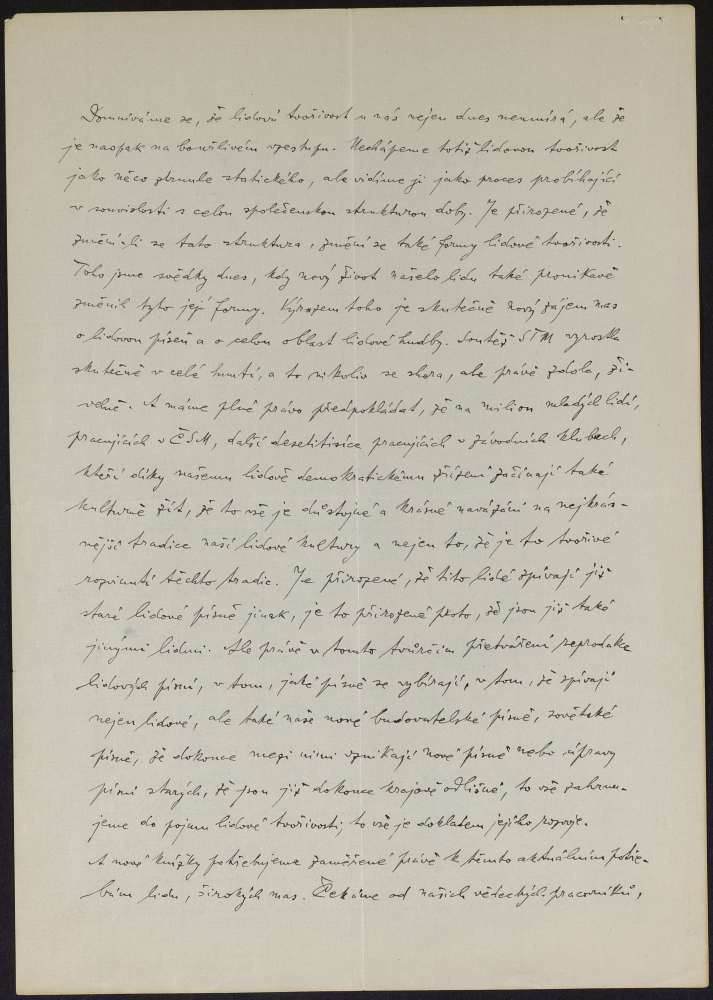 Domníváme se, že lidová tvořivost u nás nejen dnes neumírá, ale že
je naopak na bouřlivém vzestupu. Nechápeme totiž lidovou tvořivost
jako něco ztrnule statického, ale vidíme ji jako proces probíhající
v souvislosti s celou společenskou strukturou doby. Je přirozené, že
změní-li se tato struktura, změní se také formy lidové tvořivosti.
Toho jsme svědky dnes, kdy nový život našeho lidu také pronikavě
změnil tyto její formy. Výrazem toho je skutečně nový zájem mas
o lidovou píseň a o celou oblast lidové hudby. Soutěž STM vyrostla
skutečně v celé hnutí, a to nikoliv se shora, ale právě zdola, ži-
velně. A máme plné právo předpokládat, že na milion mladých lidí,
pracujících v ČSM, další desetitisíce pracujících v závodních klubech,
kteří díky našemu lidově demokratickému zřízení začínají také
kulturně žít, že to vše je důstojné a krásné navázání na nejkrás-
nější tradice naší lidové kultury a nejen to, že je to tvořivé
rozvinutí těchto tradic. Je přirozené, že tito lidé zpívají již
staré lidové písně jinak, je to přirozené proto, že jsou již také
jinými lidmi. Ale právě v tomto tvůrčím přetváření reprodukce
lidových písní, v tom, jaké písně se vybírají, v tom, že zpívají
nejen lidové, ale také naše nové budovatelské písně, sovětské
písně, že dokonce mezi nimi vznikají nové písně nebo úpravy
písní starých, že jsou již dokonce krajově odlišné, to vše zahrnu-
jeme do pojmu lidové tvořivosti, to vše je dokladem jejího rozvoje.
A nové knížky potřebujeme zaměřené právě k těmto aktuálním potře-
bám lidu, širokých mas. Čekáme od našich vědeckých pracovníků,